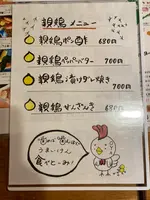 親鶏メニュー
親鶏ポン酢 680円
親鶏ペッパーバター 700円
親鶏漬けダレ焼き 700円
親鶏せんざんき 680円
うまいけん
食べとーみ!